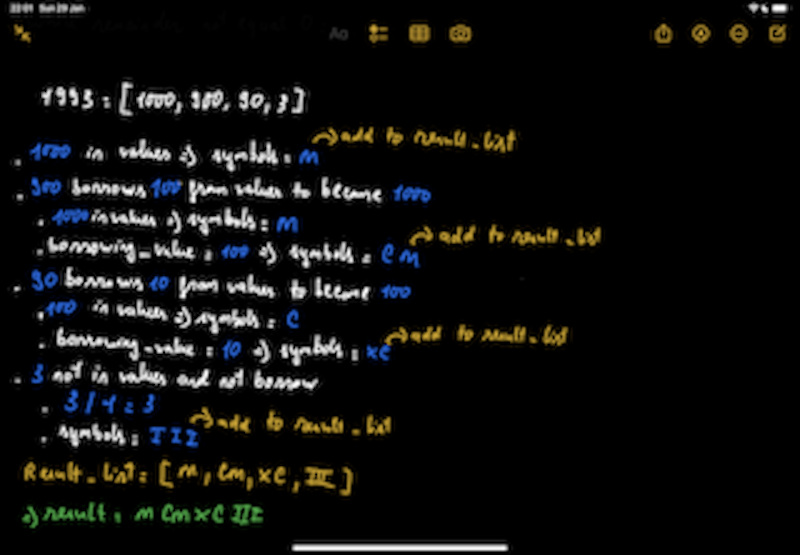 22:01 Sun 29 Jan
Aa
1993 = [1000, 900, 90, 3]
. 1000 in values => symbols = M → add to result_list
. 900 borrows 100 from values to become 1000
. 1000 in values => symbols = M
. borrowing_value = 100 => symbols = CM → add to result_list
. 90 borrows 10 from values to become 100
. 100 in values => symbols = C
. borrowing_value = 10 => symbols = XC → add to result_list
. 3 not in values and not borrow
. 3 / 1 = 3
. symbols = III → add to result_list
Result_list = [M, CM, XC, III]
=> result = MCMXCIII